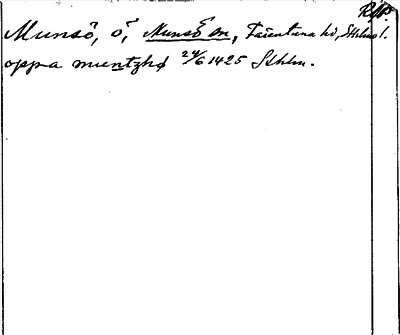 RAP.
Munsö, ö, Munsö sn, Färentuna hd, Sthlms l.
oppa muentzhø 24/6 1425 Sthlm.